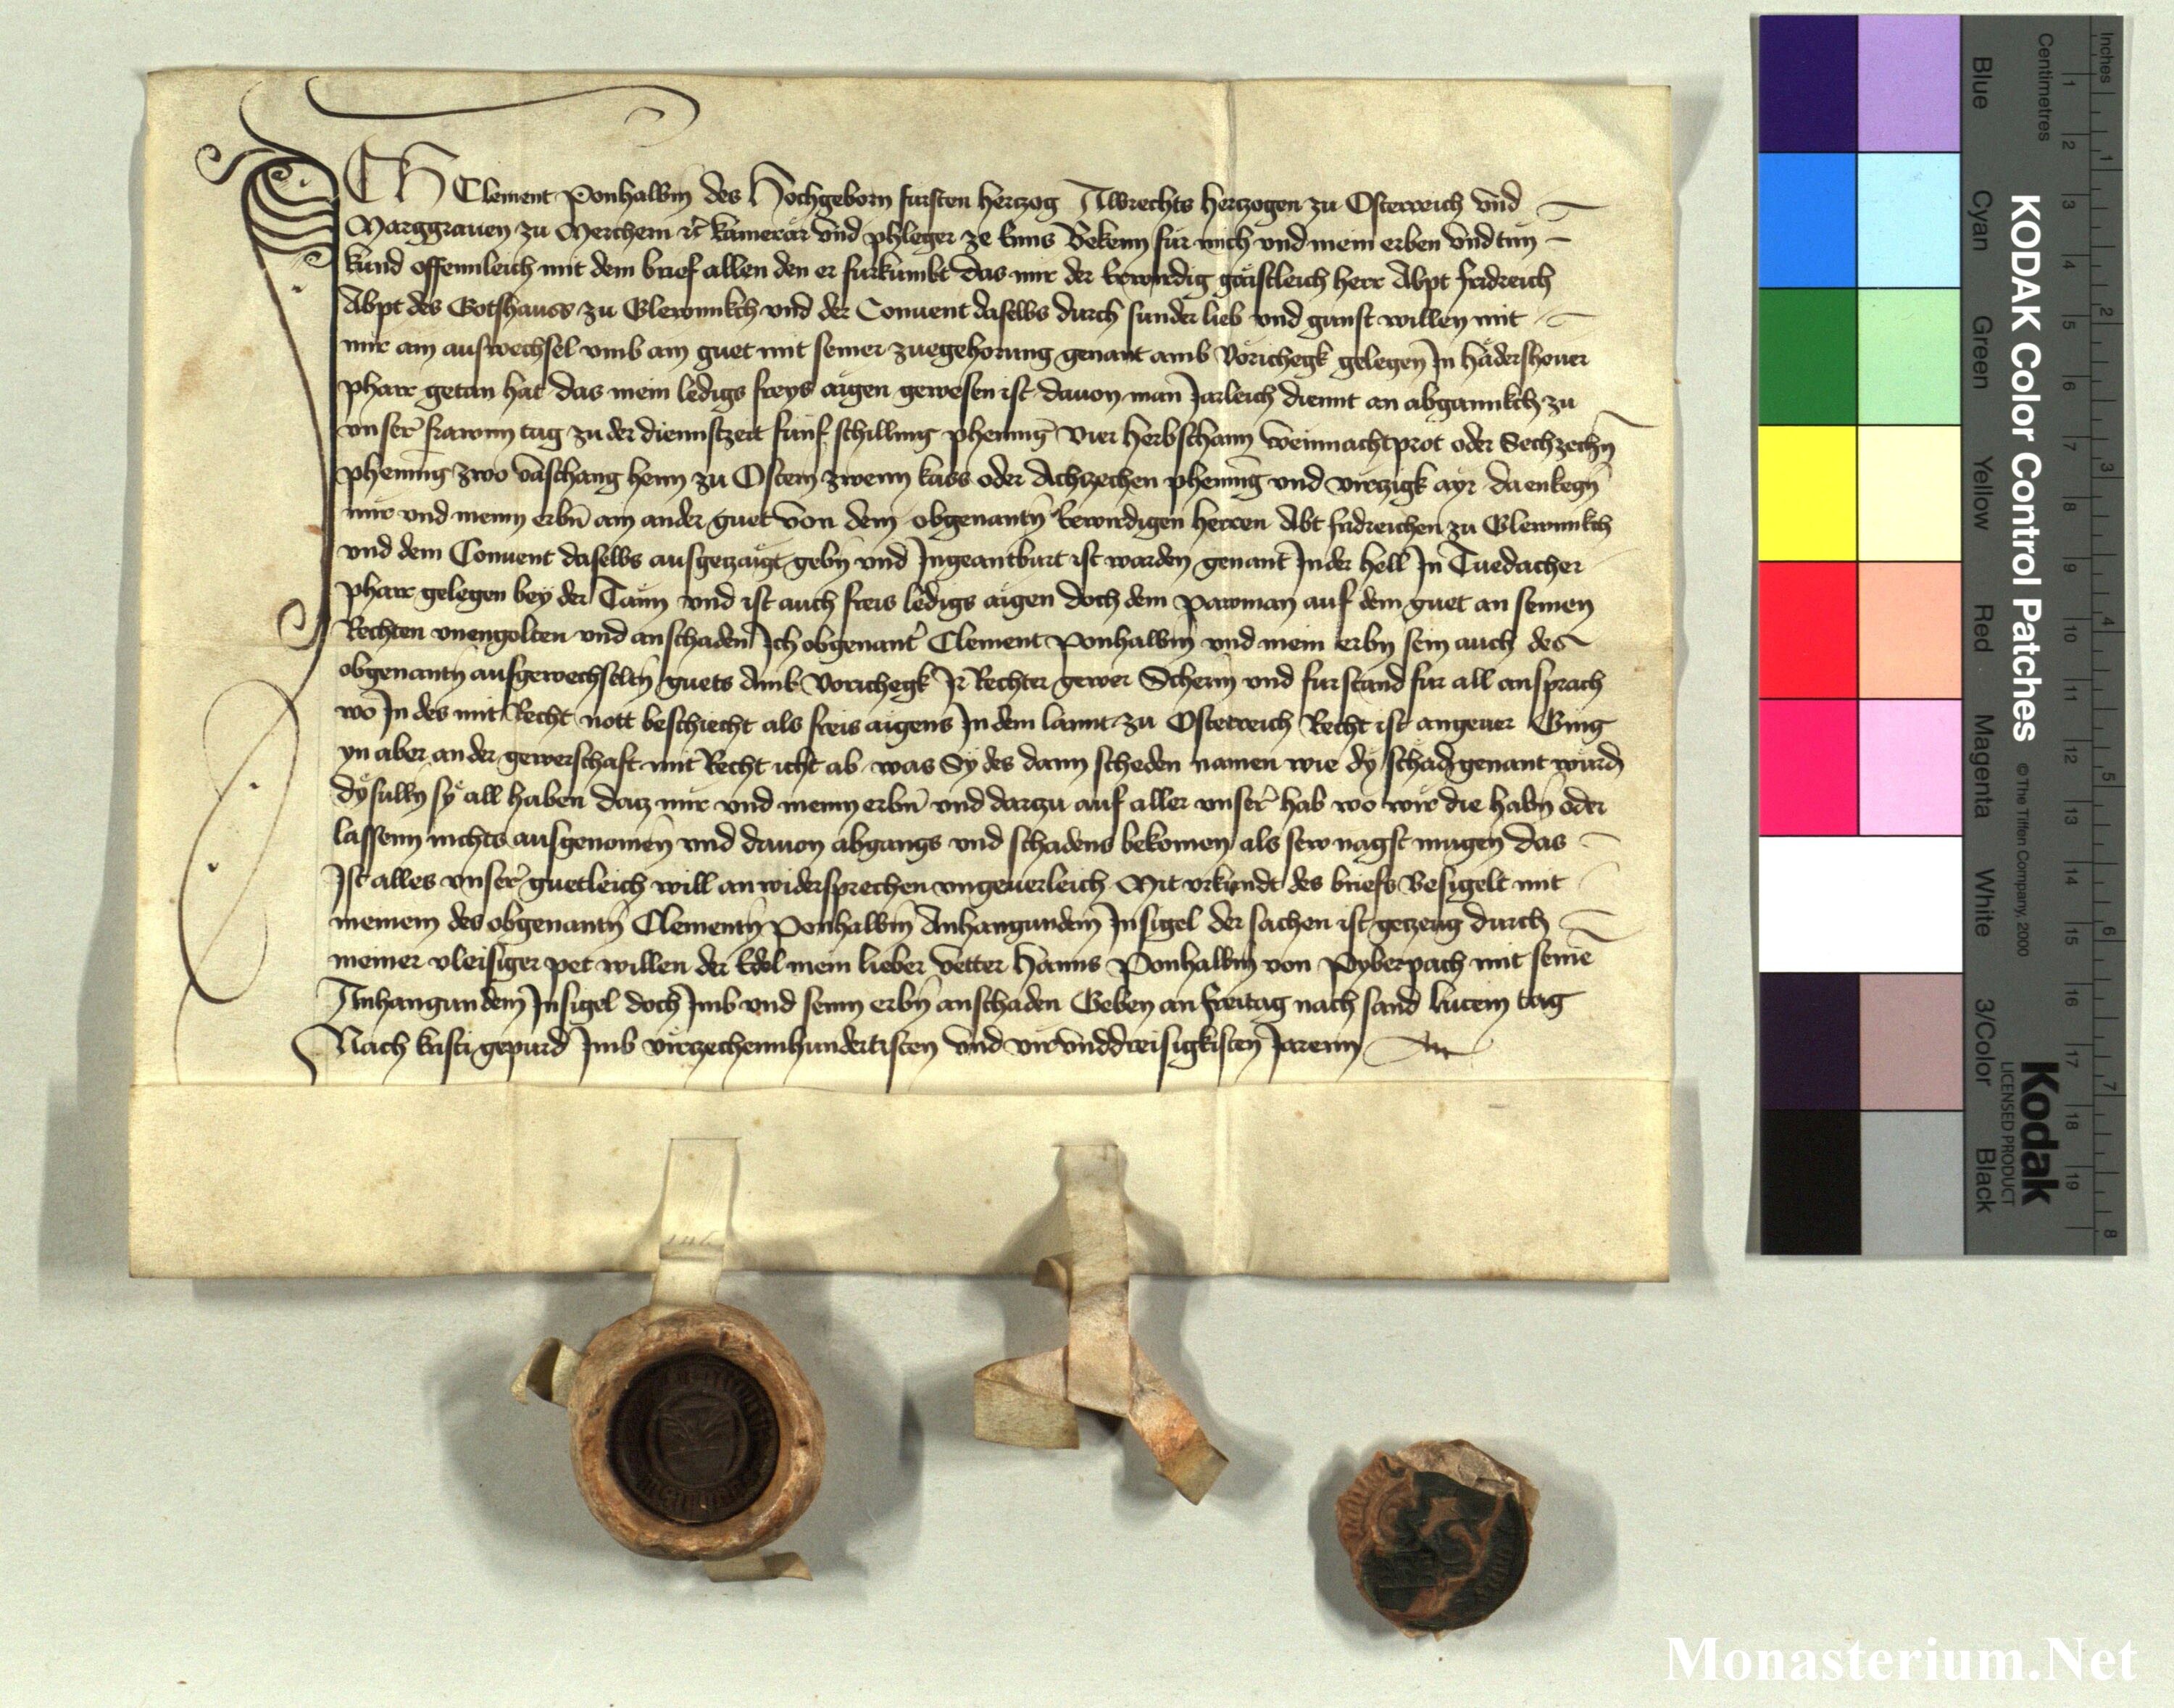 ICH Clement Ponhalbm des Hochgeborn fursten herczog Albrechts herczogen zu Osterreich vnd
Marggrauen zu Merchern kamerär vnd phleger ze Enns Bekenn für mich vnd mein erben vnd tun
kund offennleich mit dem brief allen den er fürkumbt das mir der Erwirdig gäistleich herr Abpt fridreich
Abpt des Gotshauss zu Glewnnkch vnd der Conuent daselbs durch sunder lieb vnd gunst willen mit
mir ain auswechsel vmb ain guet mit seiner zuegehörung genant amb Vörichegk gelegen In hädershouer
pharr getan hat das mein ledigs freys aigen gewesen ist dauon man Jarleich diennt an abgannkch zu
vnser frawnn tag zu der diennstzeit fünf schilling phening vier herbschann weinnachtprot oder Sechzechn
phening zwo vaschang henn zu Ostern zwenn käss oder Achzechen phening vnd virczigk ayr da enkegn
mir vnd menn erbn ain ander guet von dem obgenantn Erwirdigen herren Abt fridreichen zu Glewnnkch
vnd dem Conuent daselbs ausgeczaigt gebn vnd Ingeantburt ist warden genant In der hell In
pharr gelegen bey der Tann vnd ist auch freis ledigs aigen doch dem pawman auf dem guet an seinen
Rechten vnengolten vnd anschaden Ich obgenant Clement Ponhalbm vnd mein erbn sein auch des
obgenantn aufgewechseltn guets Amb Vorichegk Ir Rechter gewer Scherm vnd furstand fur all ansprach
wo In des mit Recht nott beschiecht als freis aigens In dem lannt zu Osterreich Recht ist angeuer Ging
yn aber an der gewerschaft mit Recht icht ab was Sy des dann scheden namen wie dy schäd genant würd
dy sulln sy all haben dacz mir vnd menn erbn vnd darczu auf aller vnser hab wo wir die habn oder
lassenn nichts ausgenomen vnd dauon abgangs vnd schadens bekomen als sew nagst mugen das
Ist alles vnser guetleich will an widersprechen vngeuerleich Mit vrkundt des briefs Besigelt mit
meinem des obgenantn Clementn Ponhalbm Anhangundem Insigel der sachen ist geczeug durch
meiner vleisiger pet willen der Edel mein lieber vetter Hanns Ponhalbm von Pyberpach mit seine
Anhangundem Insigel doch Imb vnd senn erbn anschaden Geben an freitag nach sand lucein tag
Nach kristi gepurd Imb virczechennhundertisten vnd virvnddreisigkisten Jarenn
KODAK Color Control Patches
© The Tiffen Company, 2000
Kodak
LICENSED PRODUCT
Blue
Cyan
Green
Yellow
Red
Magenta
White
3/Color
Black
Inches
1 2 3 4 5 6 7 8
Centimetres
1 2 3 4 5 6 7 8 9 10 11 12 13 14 15 16 17 18 19
Monasterium.Net